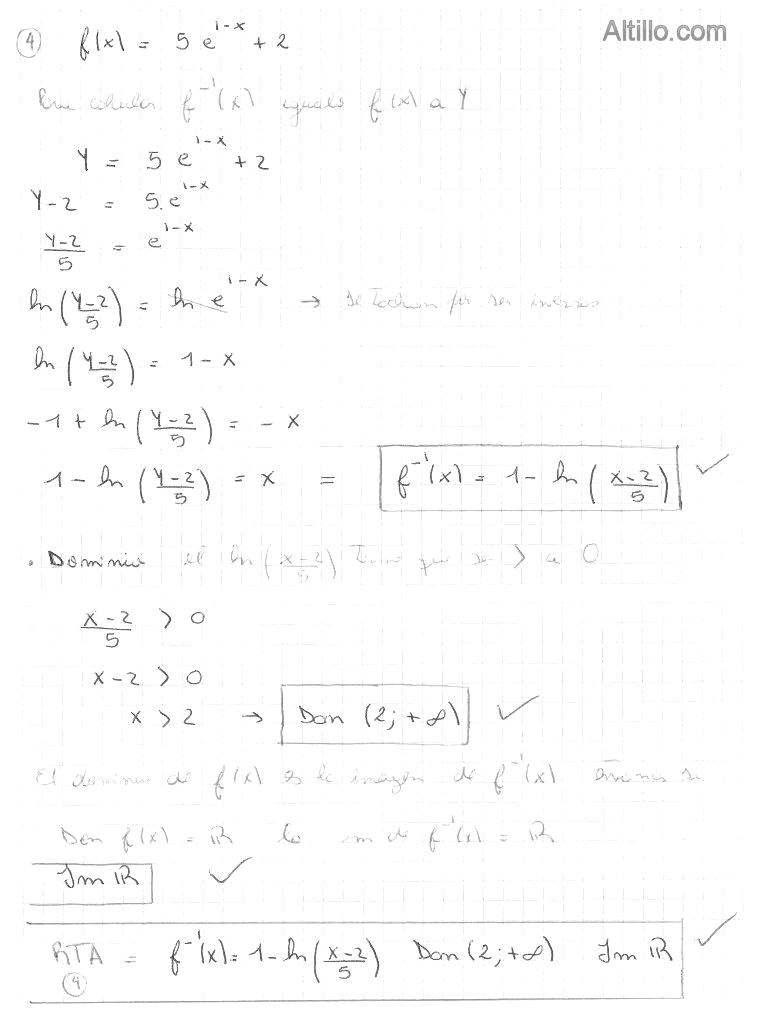 Altillo.com
④ f(x) = 5 e^(1-x) + 2
Para calcular f^(-1)(x) igualo f(x) a Y
Y = 5 e^(1-x) + 2
Y-2 = 5.e^(1-x)
(Y-2)/5 = e^(1-x)
ln((Y-2)/5) = ln e^(1-x) → se tachan por ser inversos
ln((Y-2)/5) = 1-x
-1 + ln((Y-2)/5) = -x
1 - ln((Y-2)/5) = x = f^(-1)(x) = 1 - ln((x-2)/5) ✓
. Dominio el ln((x-2)/5) tiene que ser > a 0
(x-2)/5 > 0
x-2 > 0
x > 2 → Dom (2; +∞) ✓
El dominio de f(x) es la imagen de f^(-1)(x) entonces si
Dom f(x) = ℝ la im de f^(-1)(x) = ℝ
Im ℝ ✓
RTA = f^(-1)(x) = 1 - ln((x-2)/5) Dom (2; +∞) Im ℝ ✓
④